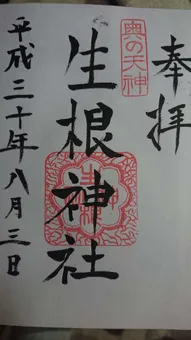 奉拝
奥の天神
生根神社
平成三十年八月三日